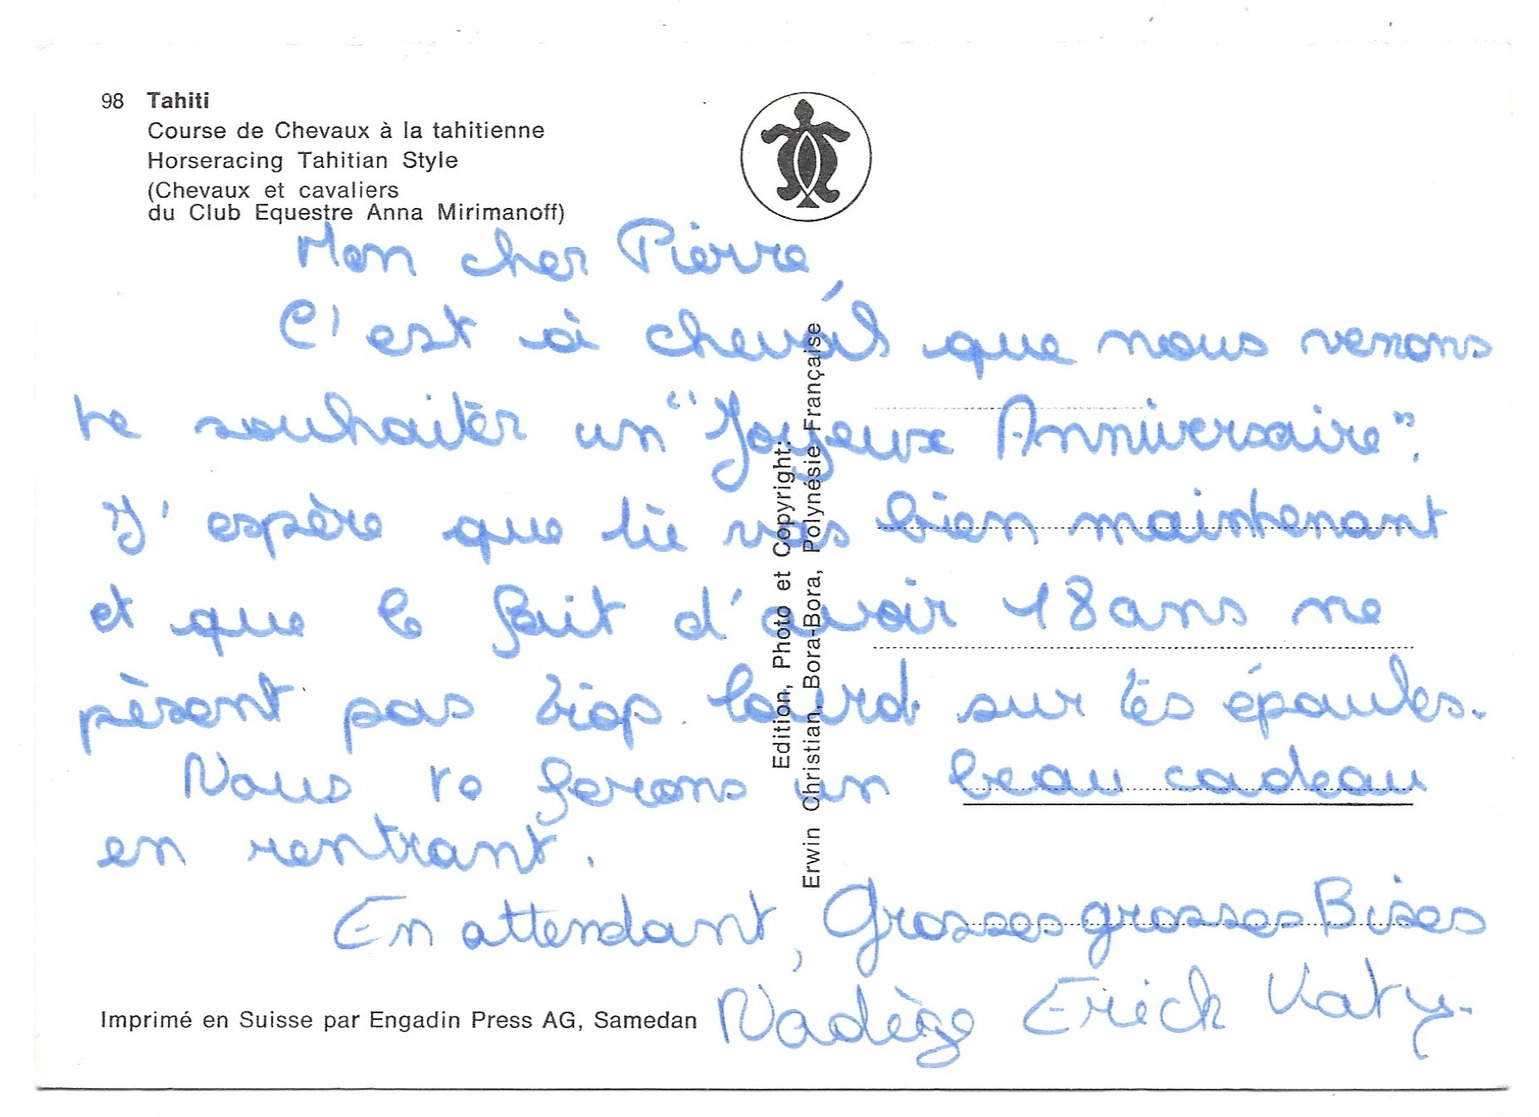 98 Tahiti
Course de Chevaux à la tahitienne
Horseracing Tahitian Style
(Chevaux et cavaliers
du Club Equestre Anna Mirimanoff)
Mon cher Pierre,
C'est à cheval que nous venons
te souhaiter un "Joyeux Anniversaire".
J'espère que tu vas bien maintenant
et que le fait d'avoir 18 ans ne
pèsent pas trop lourd sur tes épaules.
Nous te ferons un beau cadeau
en rentrant.
En attendant, Grosses grosses Bises
Nadège Erick Katy.
Edition, Photo et Copyright:
Erwin Christian, Bora-Bora, Polynésie Française
Imprimé en Suisse par Engadin Press AG, Samedan